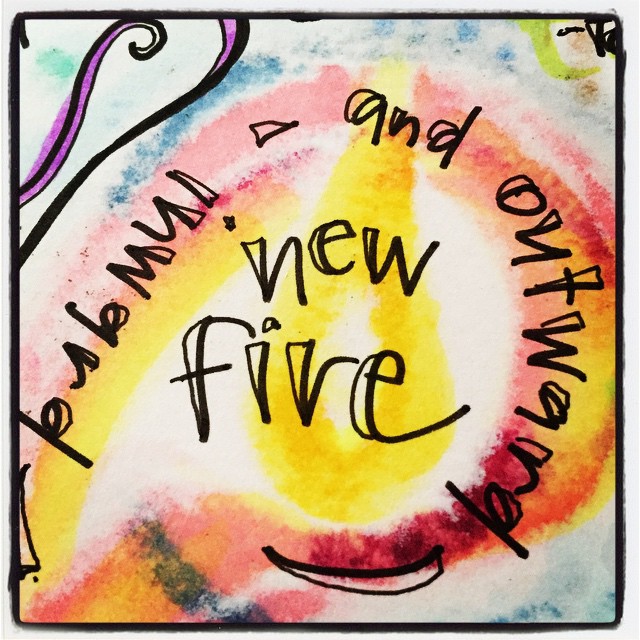 inward - and outward
new
fire